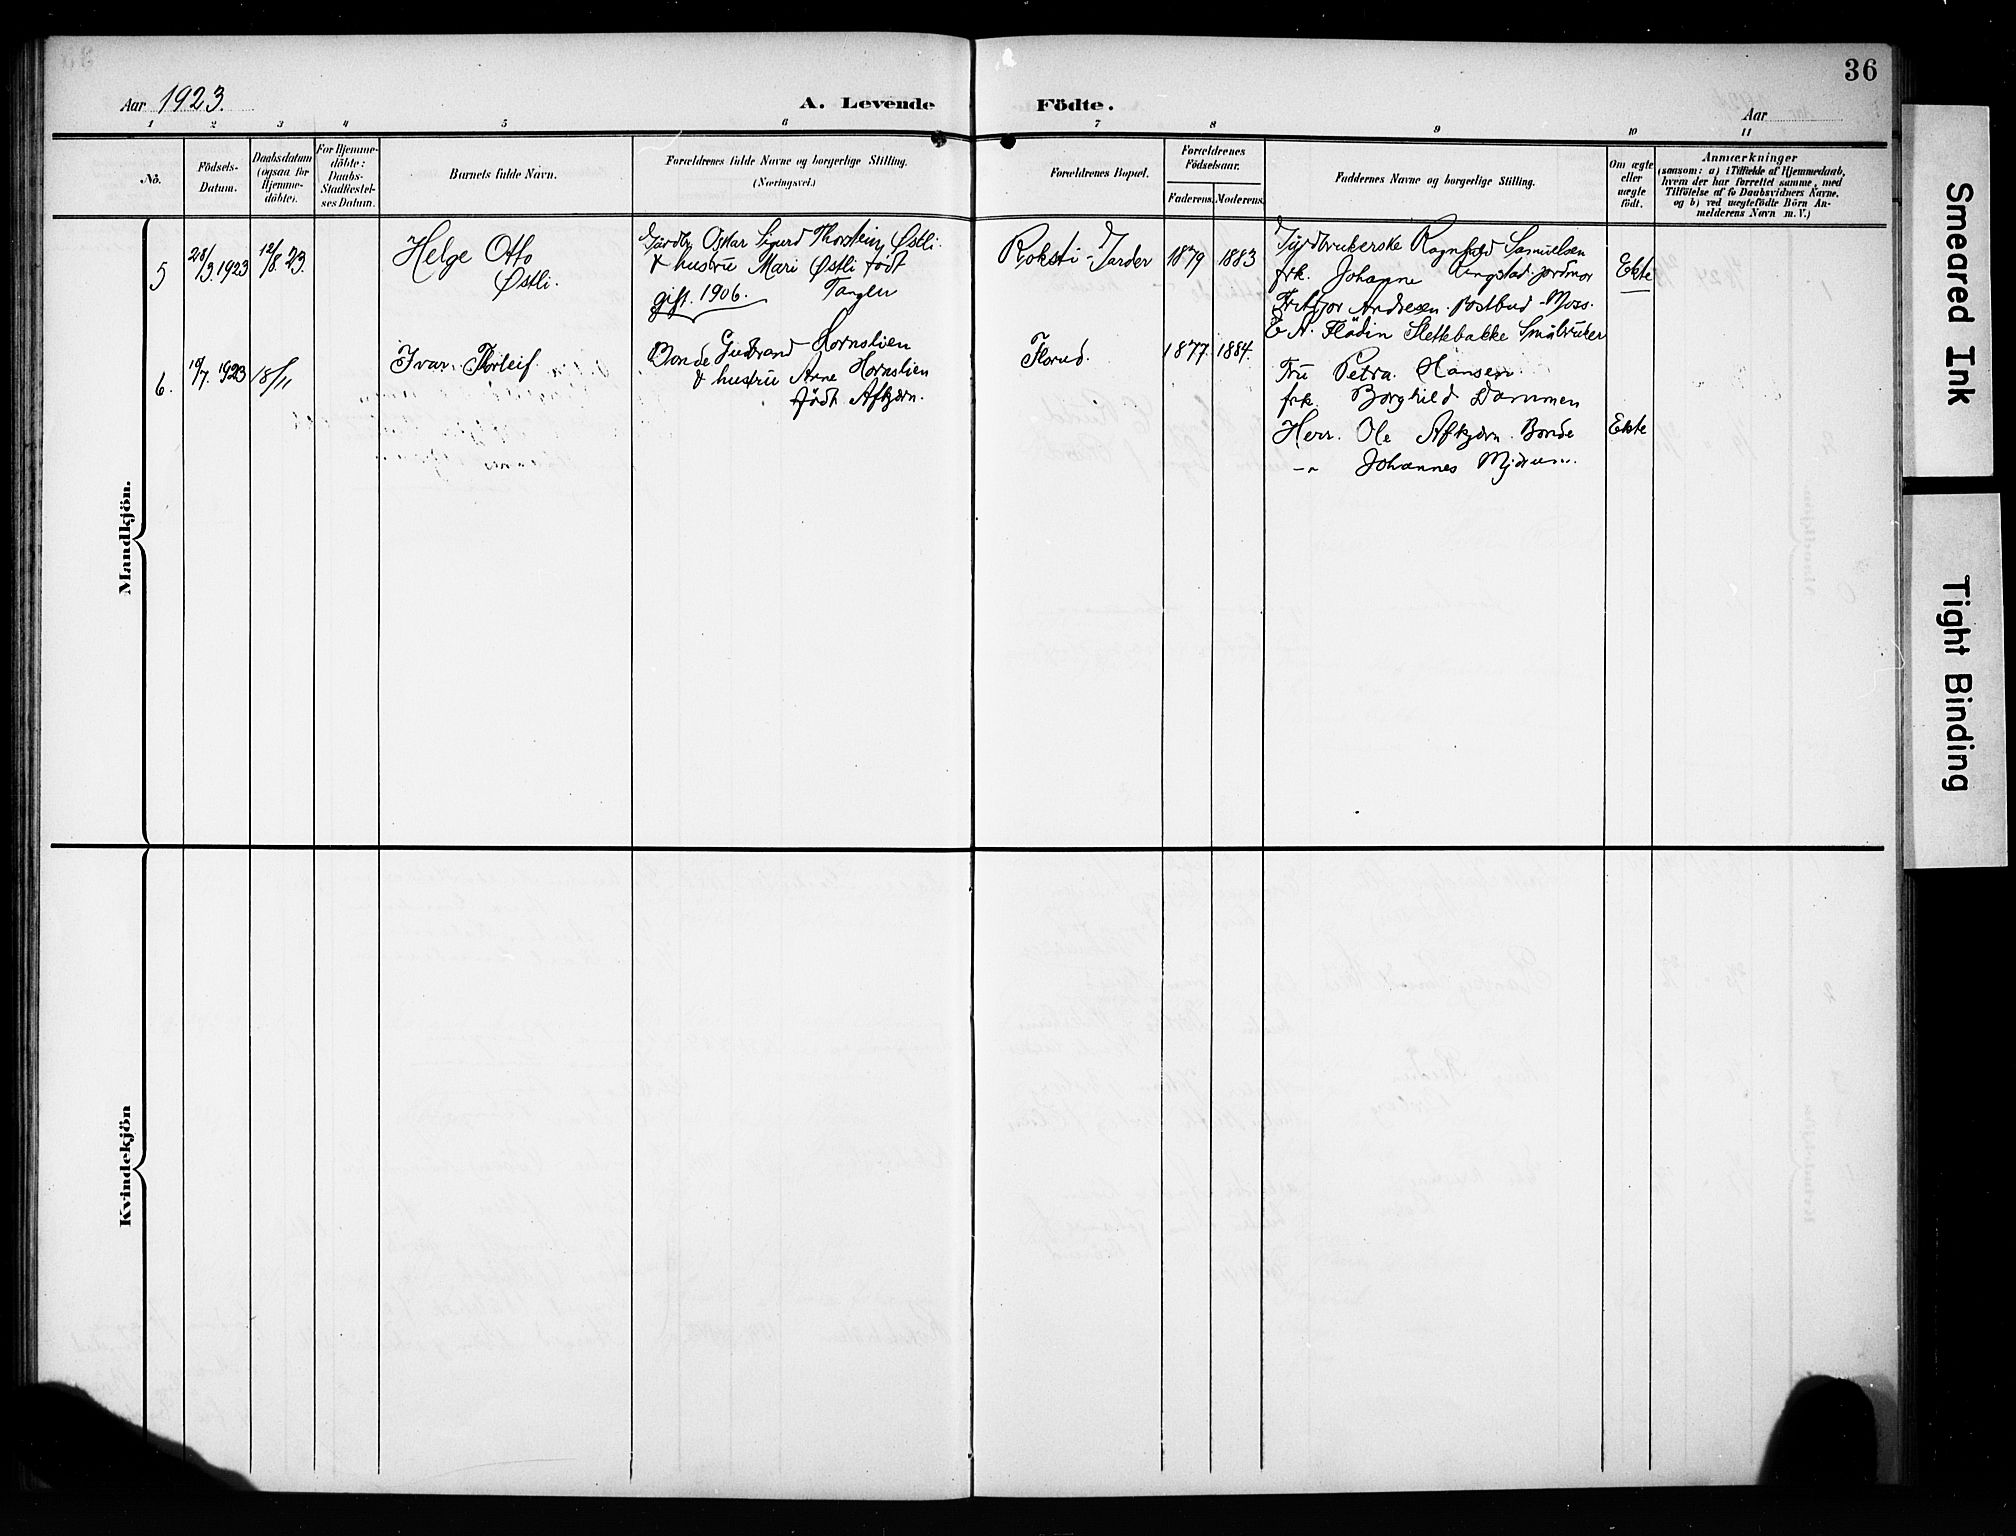 36
Aar 1923.
A. Levende
Födte.
Aar
1 2 3 4 5 6 7 8 9 10 11
No.
Födsels-
Datum.
Daabsdatum
(ogsaa for
Hjemme-
döbte).
For Hjemme-
döbte:
Daabs-
Stadfæstel-
ses Datum.
Barnets fulde Navn.
Forældrenes fulde Navne og borgerlige Stilling.
(Næringsvei.)
Forældrenes Bopæl.
Forældrenes
Födselsaar.
Faderens. Moderens.
Faddernes Navne og borgerlige Stilling.
Om ægte
eller
uægte
födt.
Anmærkninger
(saasom: a) i Tilfælde af Hjemmedaab,
hvem der har forrettet samme, med
Tilföielse af to Daabsvidners Navne,
og b) ved uægtefödte Börn An-
melderens Navn m. V.)
Mandkjön.
5
28/3 1923
12/8 23.
Helge Otto
Østli.
Gårdbr. Oskar Sigurd Thorstein Østli
& hustru Mari Østli født
gift. 1906. Tangen
Roksti - Jarder
1879
1883
Ragnhild Samuelsen
frk. Johanne Ringstad jordmor
Fritjof Andresen Postbud - Moss.
E A. Flådin Slettebakke Småbruker
Ekte
6.
10/7 1923
18/11
Ivar Thorleif.
Bonde Gudbrand Hornslien
& hustru Anne Hornslien
født Afkjern.
Florud.
1877.
1884.
Fru Petra Hansen
frk. Borghild Dammen
Herr. Ole Afkjern. Bonde
-"- Johannes
Ekte
Kvindekjön
Smeared Ink
Tight Binding